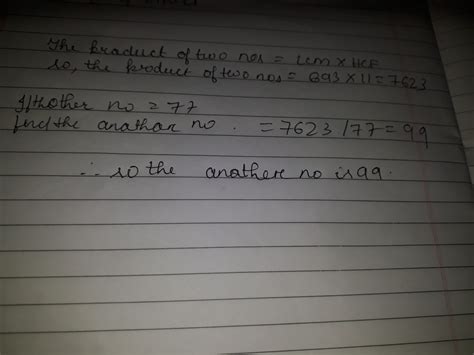 The praduct of two nos = LCM X HCF
so, the product of two nos = 693 X 11 = 7623
If other no = 77
find the anathar no. = 7623 / 77 = 99
∴ so the anathere no is 99.